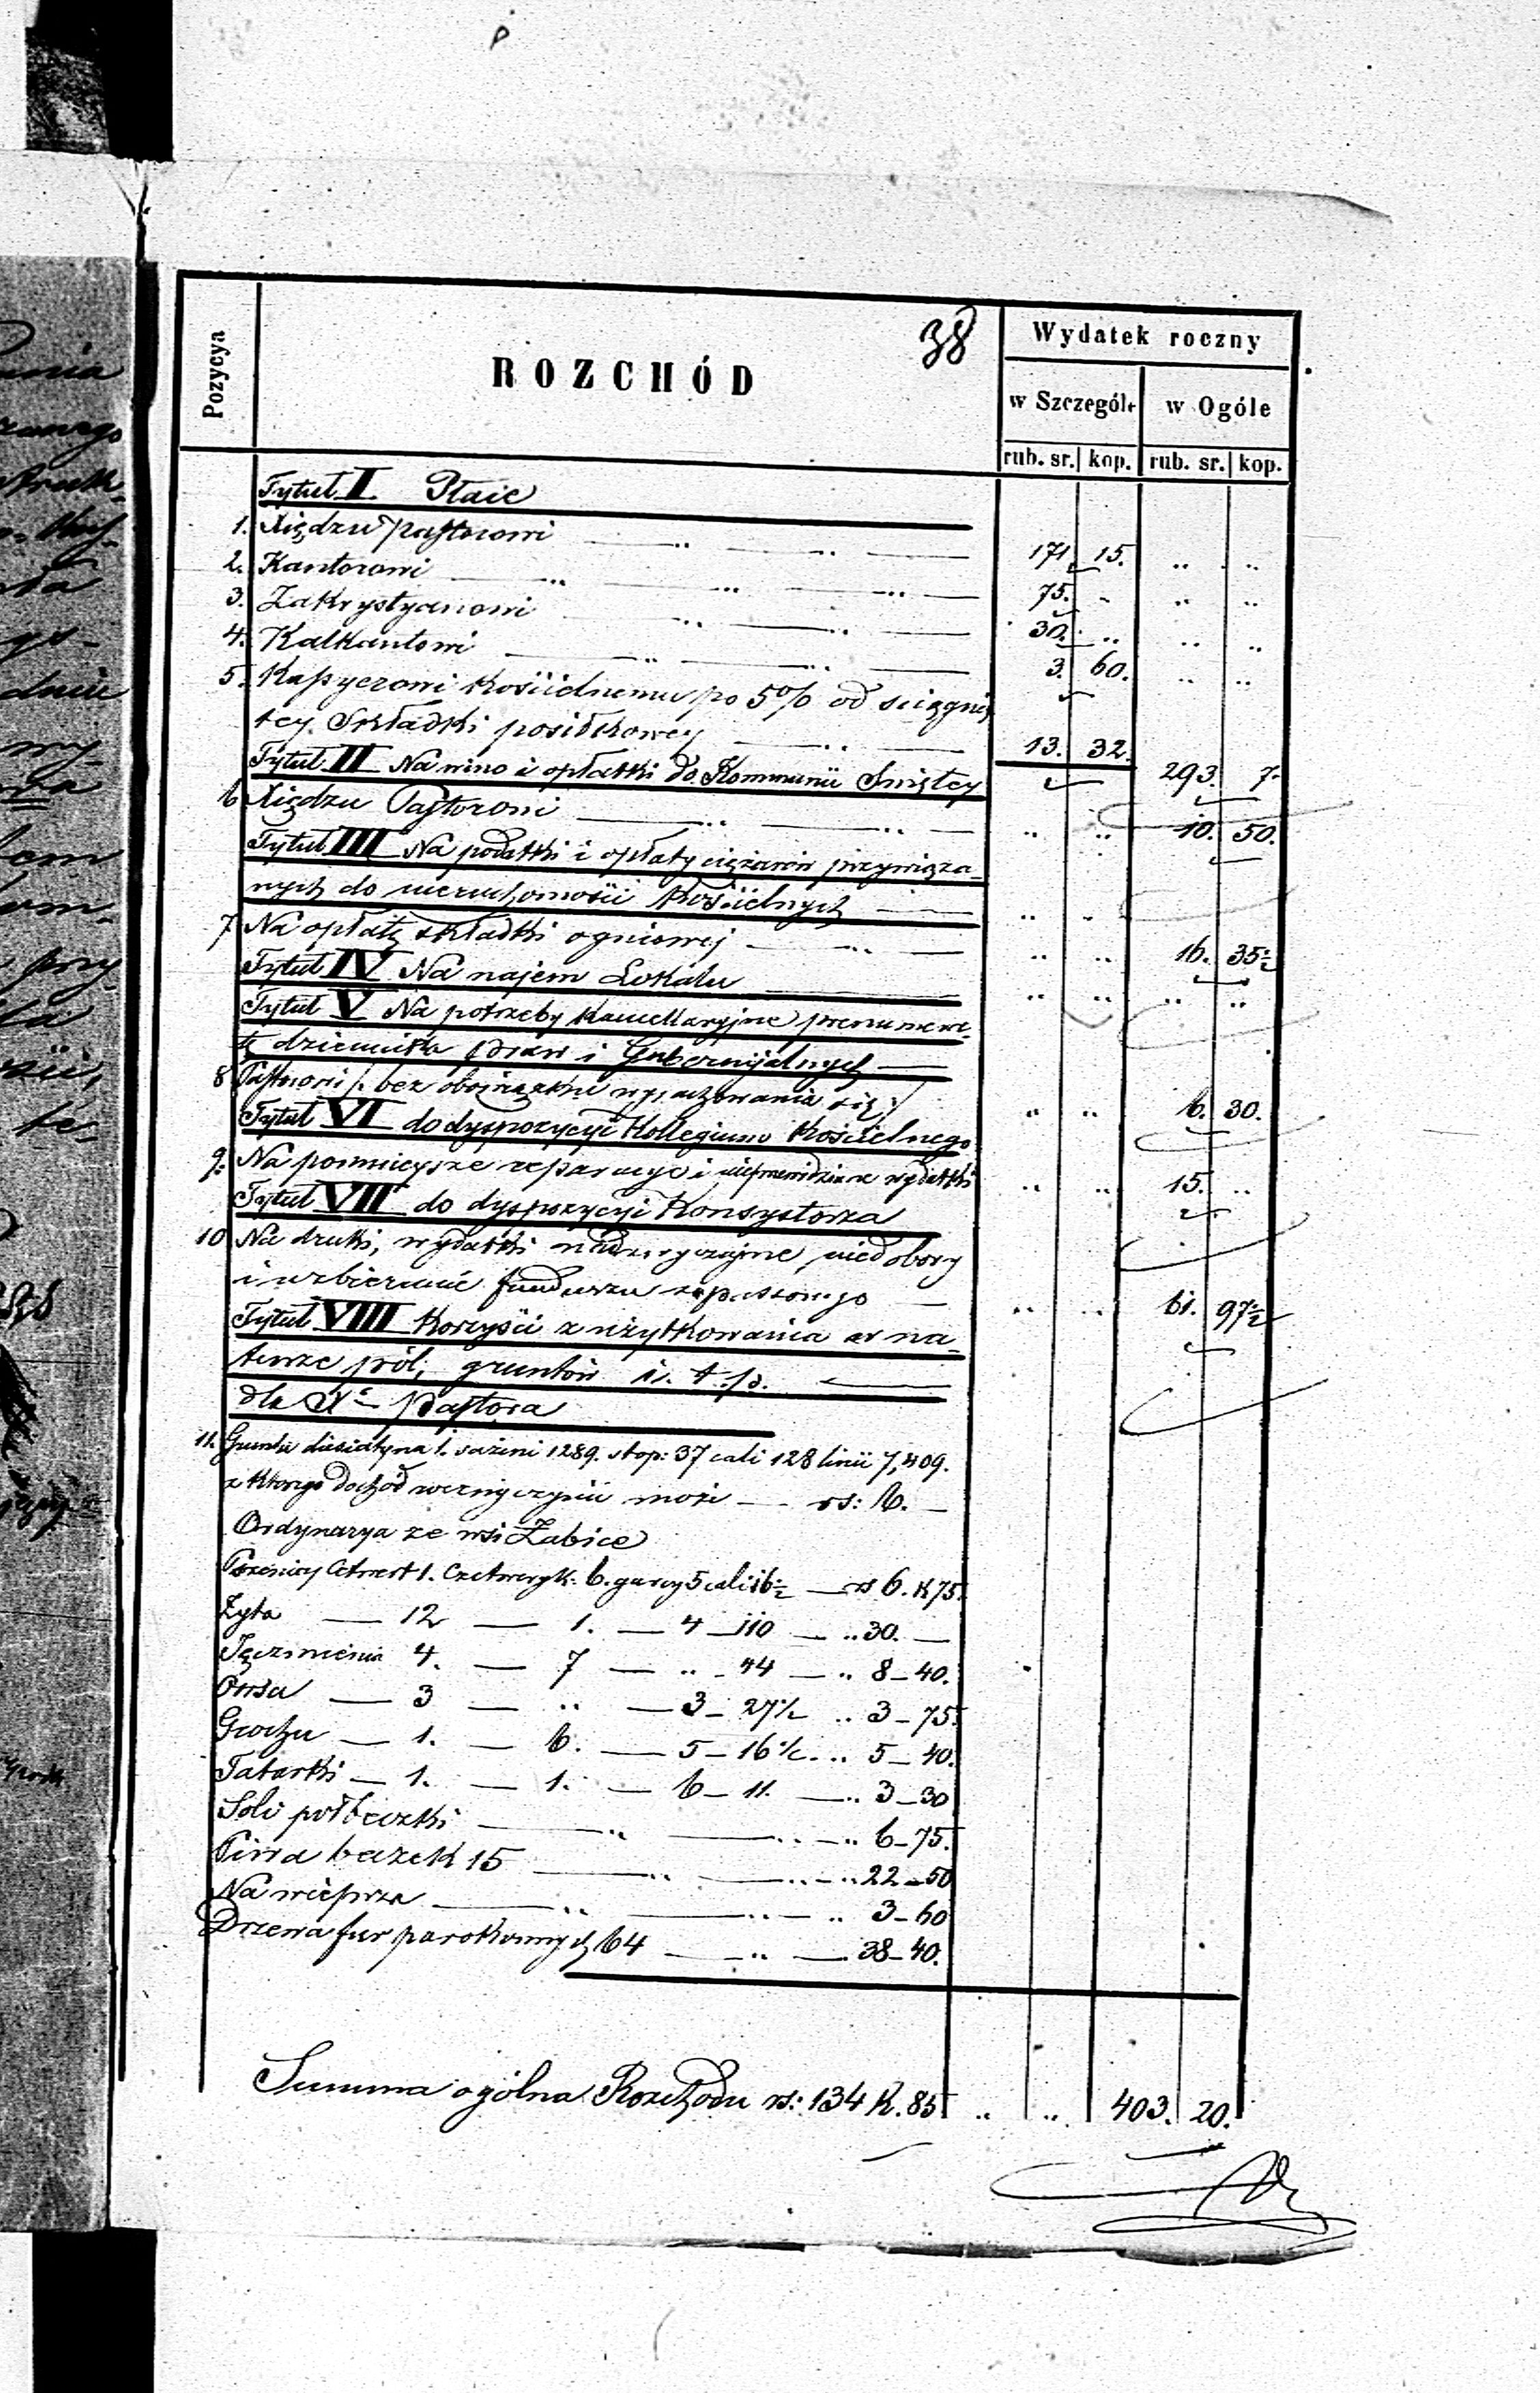 38
Pozycya
ROZCHÓD
Wydatek roczny
w Szczególe w Ogóle
rub. sr. kop. rub. sr. kop.
Tytuł I. Płace
1. Xiędzu Pastorowi 171 15.
2. Kantorowi 75.
3. Zakrystyanowi 30.
4. Kalkantowi 3. 60.
5. Kassyerowi Kościelnemu po 5% od ściągnię
tey Składki posiłkowey 13. 32. 293. 7.
Tytuł II Na wino i opłatki do Kommunii Swiętey
6 Xiędzu Pastorowi 10. 50.
Tytuł III Na podatki i opłaty ciężarów przywiąza-
nych do nieruchomości Kościelnych
7 Na opłatę składki ogniowej 16. 35½
Tytuł IV Na najem Lokalu
Tytuł V Na potrzeby Kancellaryjne prenumera-
tę dziennika praw i Gubernijalnych
8 Pastorowi /: bez obowiązku wyrachowania się :/ 6. 30.
Tytuł VI do dyspozycyi Kollegium Kościelnego
9. Na pomniejsze reparacye i nieprzewidziane wydatki 15.
Tytuł VII do dyspozycyi Konsystorza
10 Na druki, wydatki nadzwyczajne, niedobory
i uzbieranie funduszu zapasowego 61. 97½
Tytuł VIII Korzyści z użytkowania w na-
turze pól, gruntów i. t. p.
dla Xa Pastora
11. Gruntu diesiatyna 1. sażeni 1289. stop: 37 cali 128 linii 7,409.
z którego dochód roczny czynić może rs: 6.
Ordynarya ze wsi Żabice
Pszenicy Cetwert 1. Czetweryk: 6. garcy 5 cali 16½ rs 6. K 75.
Żyta 12 1. 4 110 30.
Jęczmienia 4. 7 44 8-40.
Owsa 3 3-27½ 3-75.
Grochu 1. 6. 5-16½ 5-40.
Tatarki 1. 1. 6-11. 3-30
Soli pół beczki 6-75.
Piwa beczek 15 22-50
Na wieprza 3-60
Drzewa fur parokonnych 64 38-40.
Summa ogólna Rozchodu rs: 134 K. 85 403. 20.